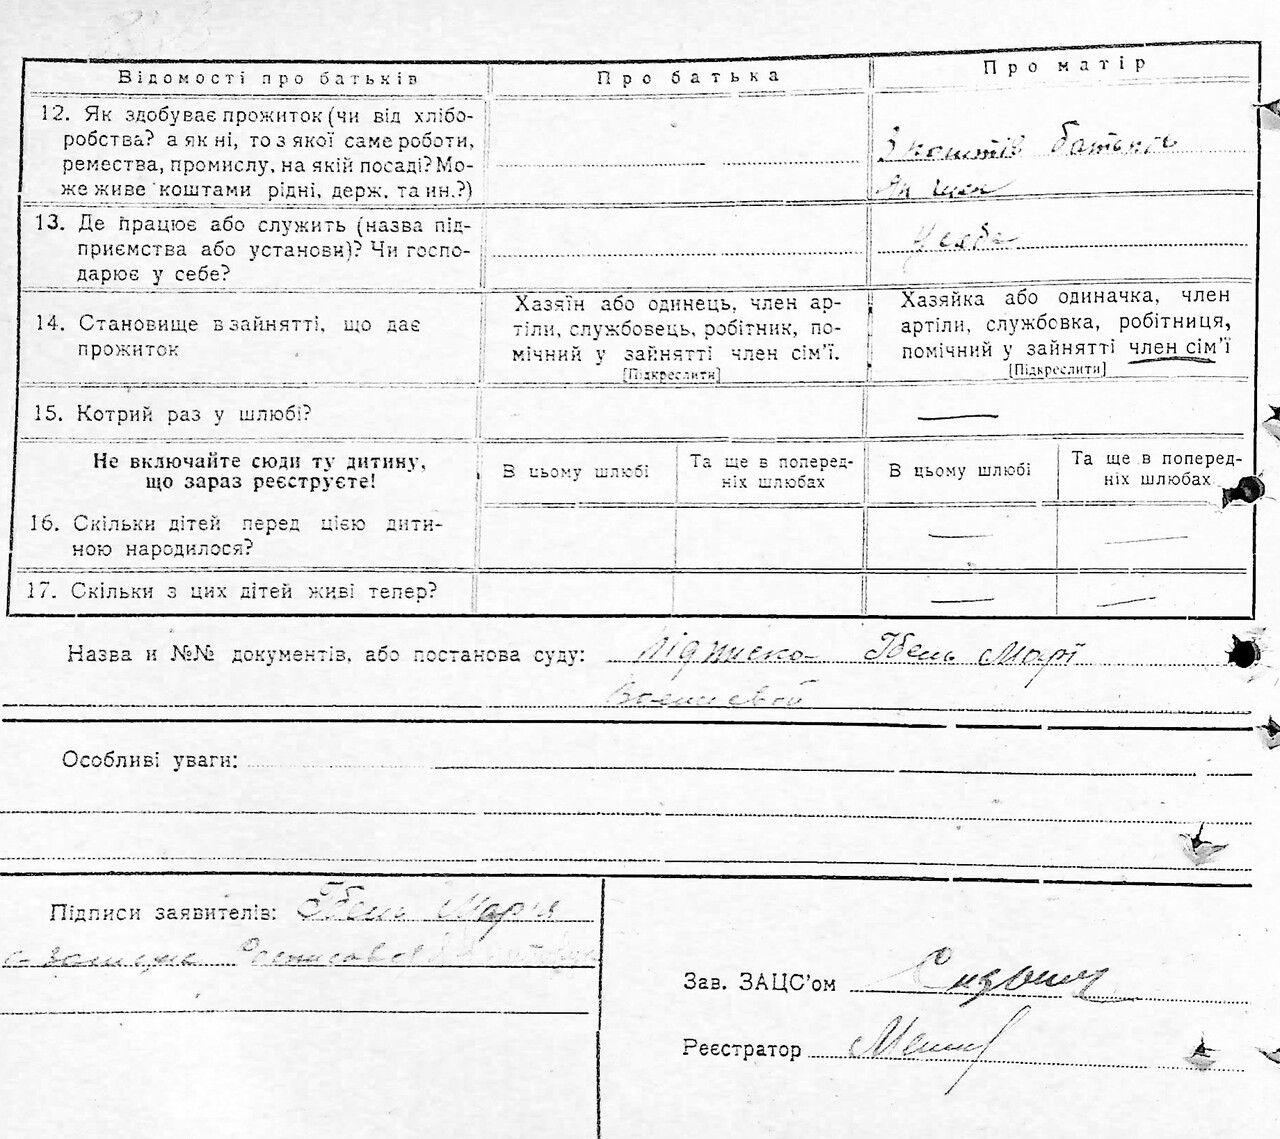 Відомості про батьків
Про батька
Про матір
12. Як здобуває прожиток (чи від хлібо-
робства? а як ні, то з якої саме роботи,
ремества, промислу, на якій посаді? Мо-
же живе коштами рідні, держ. та ин.?)
З коштів батьків
13. Де працює або служить (назва під-
приємства або установи)? Чи госпо-
дарює у себе?
У себе
14. Становище в зайнятті, що дає
прожиток
Хазяїн або одинець, член ар-
тіли, службовець, робітник, по-
мічний у зайнятті член сім'ї.
[Підкреслити]
Хазяйка або одиначка, член
артіли, службовка, робітниця,
помічний у зайнятті член сім'ї
[Підкреслити]
15. Котрий раз у шлюбі?
Не включайте сюди ту дитину,
що зараз реєструєте!
В цьому шлюбі
Та ще в поперед-
ніх шлюбах
В цьому шлюбі
Та ще в поперед-
ніх шлюбах
16. Скільки дітей перед цією дити-
ною народилося?
17. Скільки з цих дітей живі тепер?
Назва и №№ документів, або постанова суду: Підписка Гбель Марї
Особливі уваги:
Підписи заявителів: Гбель Мар'я
Зав. ЗАЦС'ом
Реєстратор